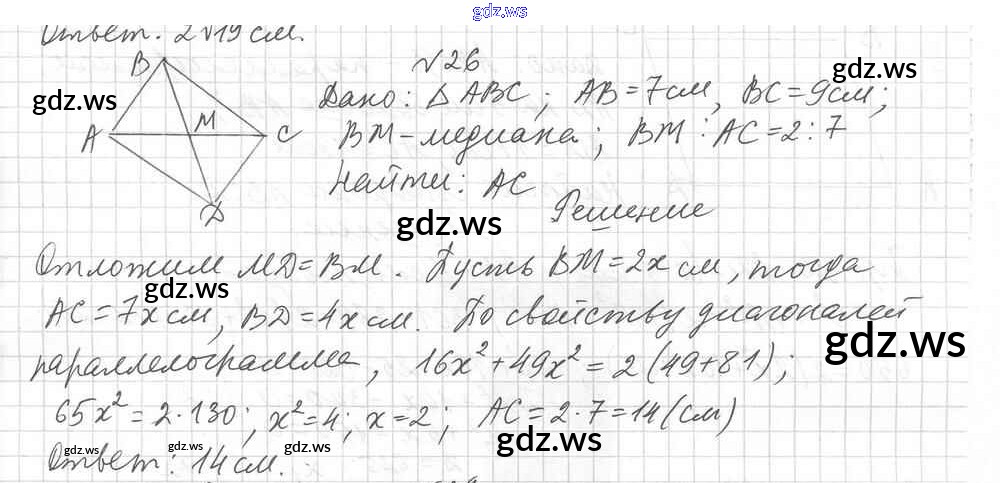 gdz.ws
Ответ: 2√19 см.
№26
B
A
M
C
D
Дано: Δ ABC; AB=7см, BC=9см;
BM-медиана; BM : AC=2:7
Найти: AC
Решение
Отложим MD=BM. Пусть BM=2x см, тогда
AC=7x см, BD=4x см. По свойству диагоналей
параллелограмма, 16x²+49x²=2(49+81);
65x²=2·130; x²=4; x=2; AC=2·7=14(см)
Ответ: 14 см.
gdz.ws
gdz.ws
gdz.ws
gdz.ws
gdz.ws
gdz.ws
gdz.ws
gdz.ws